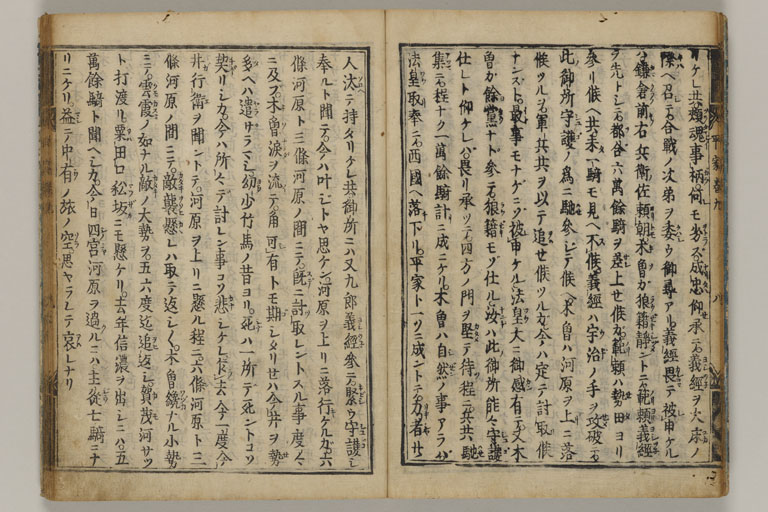 リケレ共頬魂事柄何モ劣ス成忠仰承テ義經ヲ大床ノ
際ヘ召テ合戰ノ次第ヲ委ウ御尋アル義經畏テ被申ケル
ハ鎌倉前右兵衛佐頼朝木曽カ狼籍靜ントテ範頼義經
ヲ先トシテ都合六萬餘騎ヲ差上セ候カ範頼ハ勢田ヨリ
參リ候ヘ共未一騎モ見ヘ不候義經ハ宇治ノ手ヲ攻破テ
此御所守護ノ爲ニ馳參シテ候木曽ハ河原ヲ上ニ落
候ツルヲ軍兵共ヲ以テ追セ候ツル方今ハ定テ討取候
ナンスト取事モナケニソ被申ケル法皇大ニ御感有テ又木
曽カ餘黨ナト參テ狼籍モソ仕ル汝ハ此御所能々守護
仕レト仰ケレハ畏リ承ツテ四方ノ門ヲ堅テ待程ニ兵共馳
集テ程ナク一萬餘騎計ニ成ニケリ木曽ハ自然ノ事アラハ
法皇取奉テ西國ヘ落下ル平家ト一ツニ成ントテ力者廿
人汰テ持タリケレ共御所ニハ又九郎義經參テ緊ウ守護シ
奉ルト聞テ今ハ叶シトヤ思ケン河原ヲ上リニ落行ケルカ六
條河原ト三條河原ノ間ニテ既ニ討取レントスル事度々
ニ及フ木曽涙ヲ流テ角可有トモ期シタリセハ今井ヲ勢
多ヘハ遣サラマシ幼少竹馬ノ昔ヨリ死ハ一所テ死ントコソ
契リシカ今ハ所々テ討レン事コソ悲シケレ去今一度今
井行衛ヲ聞ントテ河原ヲ上リニ懸ル程ニ六條河原ト三
條河原ノ間ニテ敵襲懸レハ取テ返シ々々木曽僥ナル小勢
ニテ雲霞ノ如ナル敵ノ大勢ヲ五六度迄追返シ賀茂河サツ
ト打渡リ粟田口松坂ニモ懸ケリ去年信濃ヲ出シニハ五
萬餘騎ト聞ヘシカ今日四宮河原ヲ過ルニハ主従七騎ニナ
リニケリ益テ中有ノ旅ノ空思ヤラレテ哀レナリ